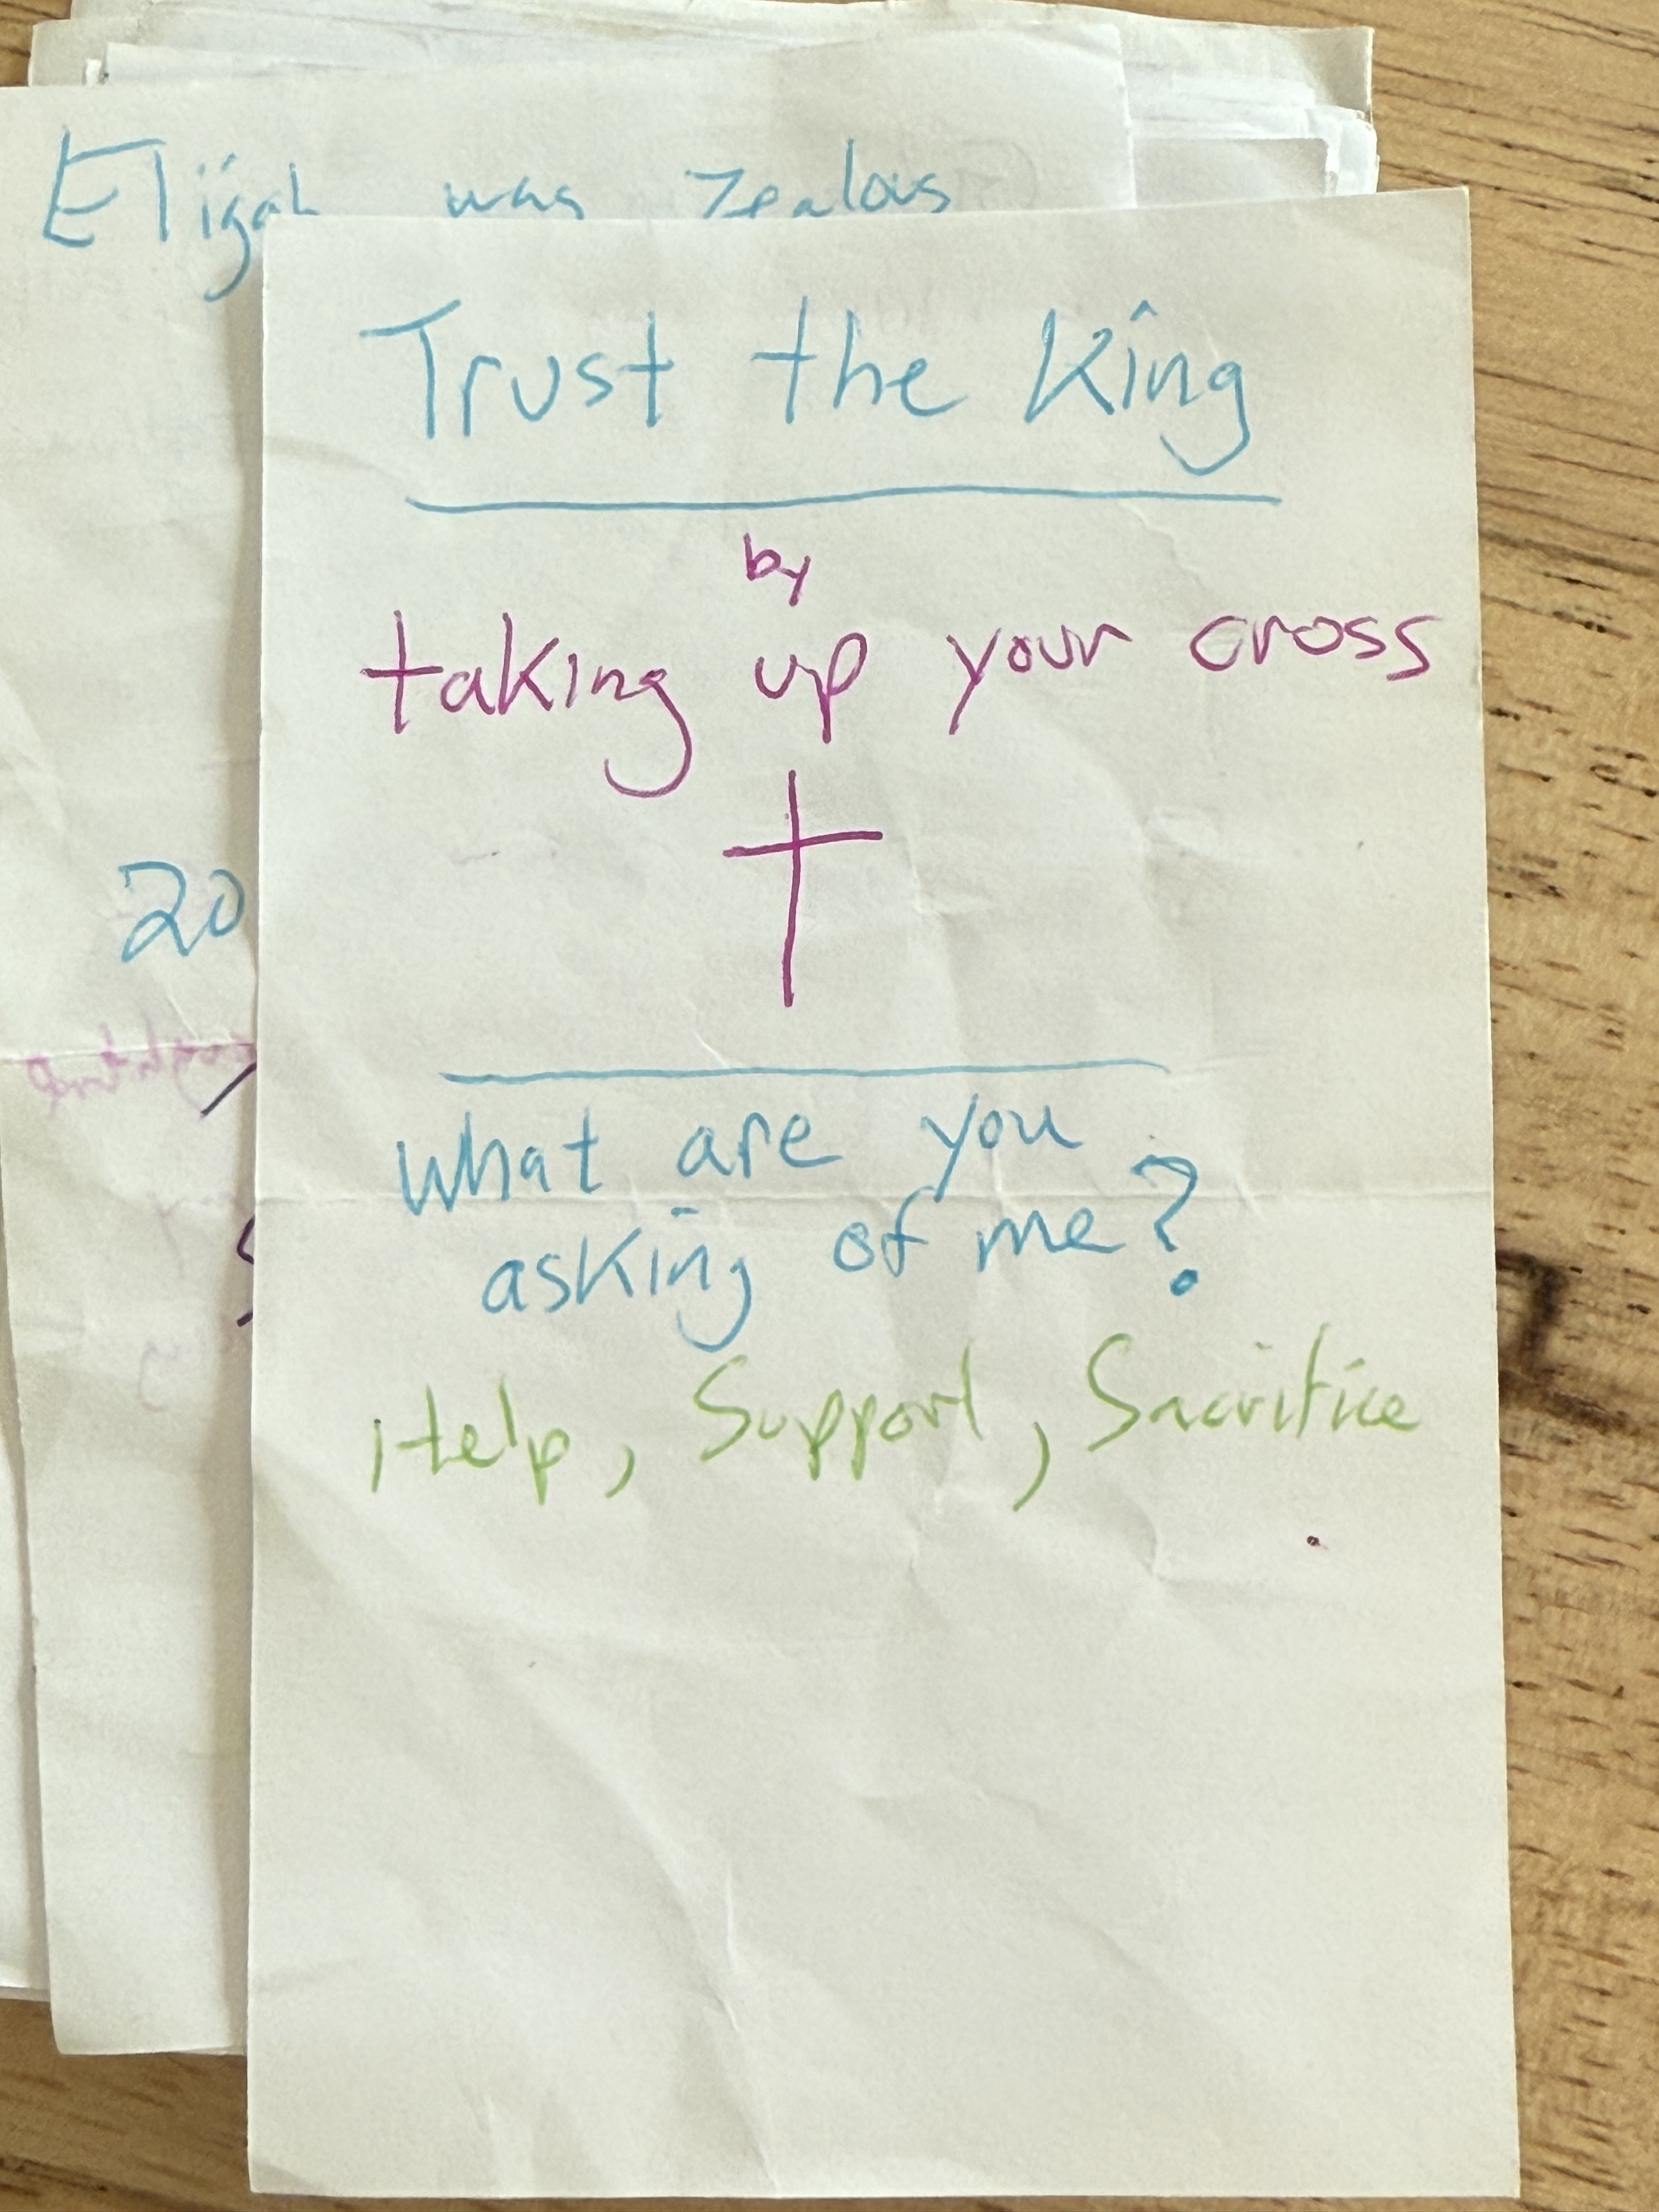 Elijah was zealous
Trust the King
by
taking up your cross
What are you
asking of me?
Help, Support, Sacrifice
20